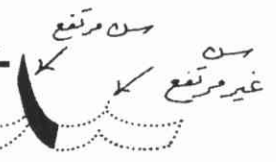 سن مرتفع
سن
غير مرتفع